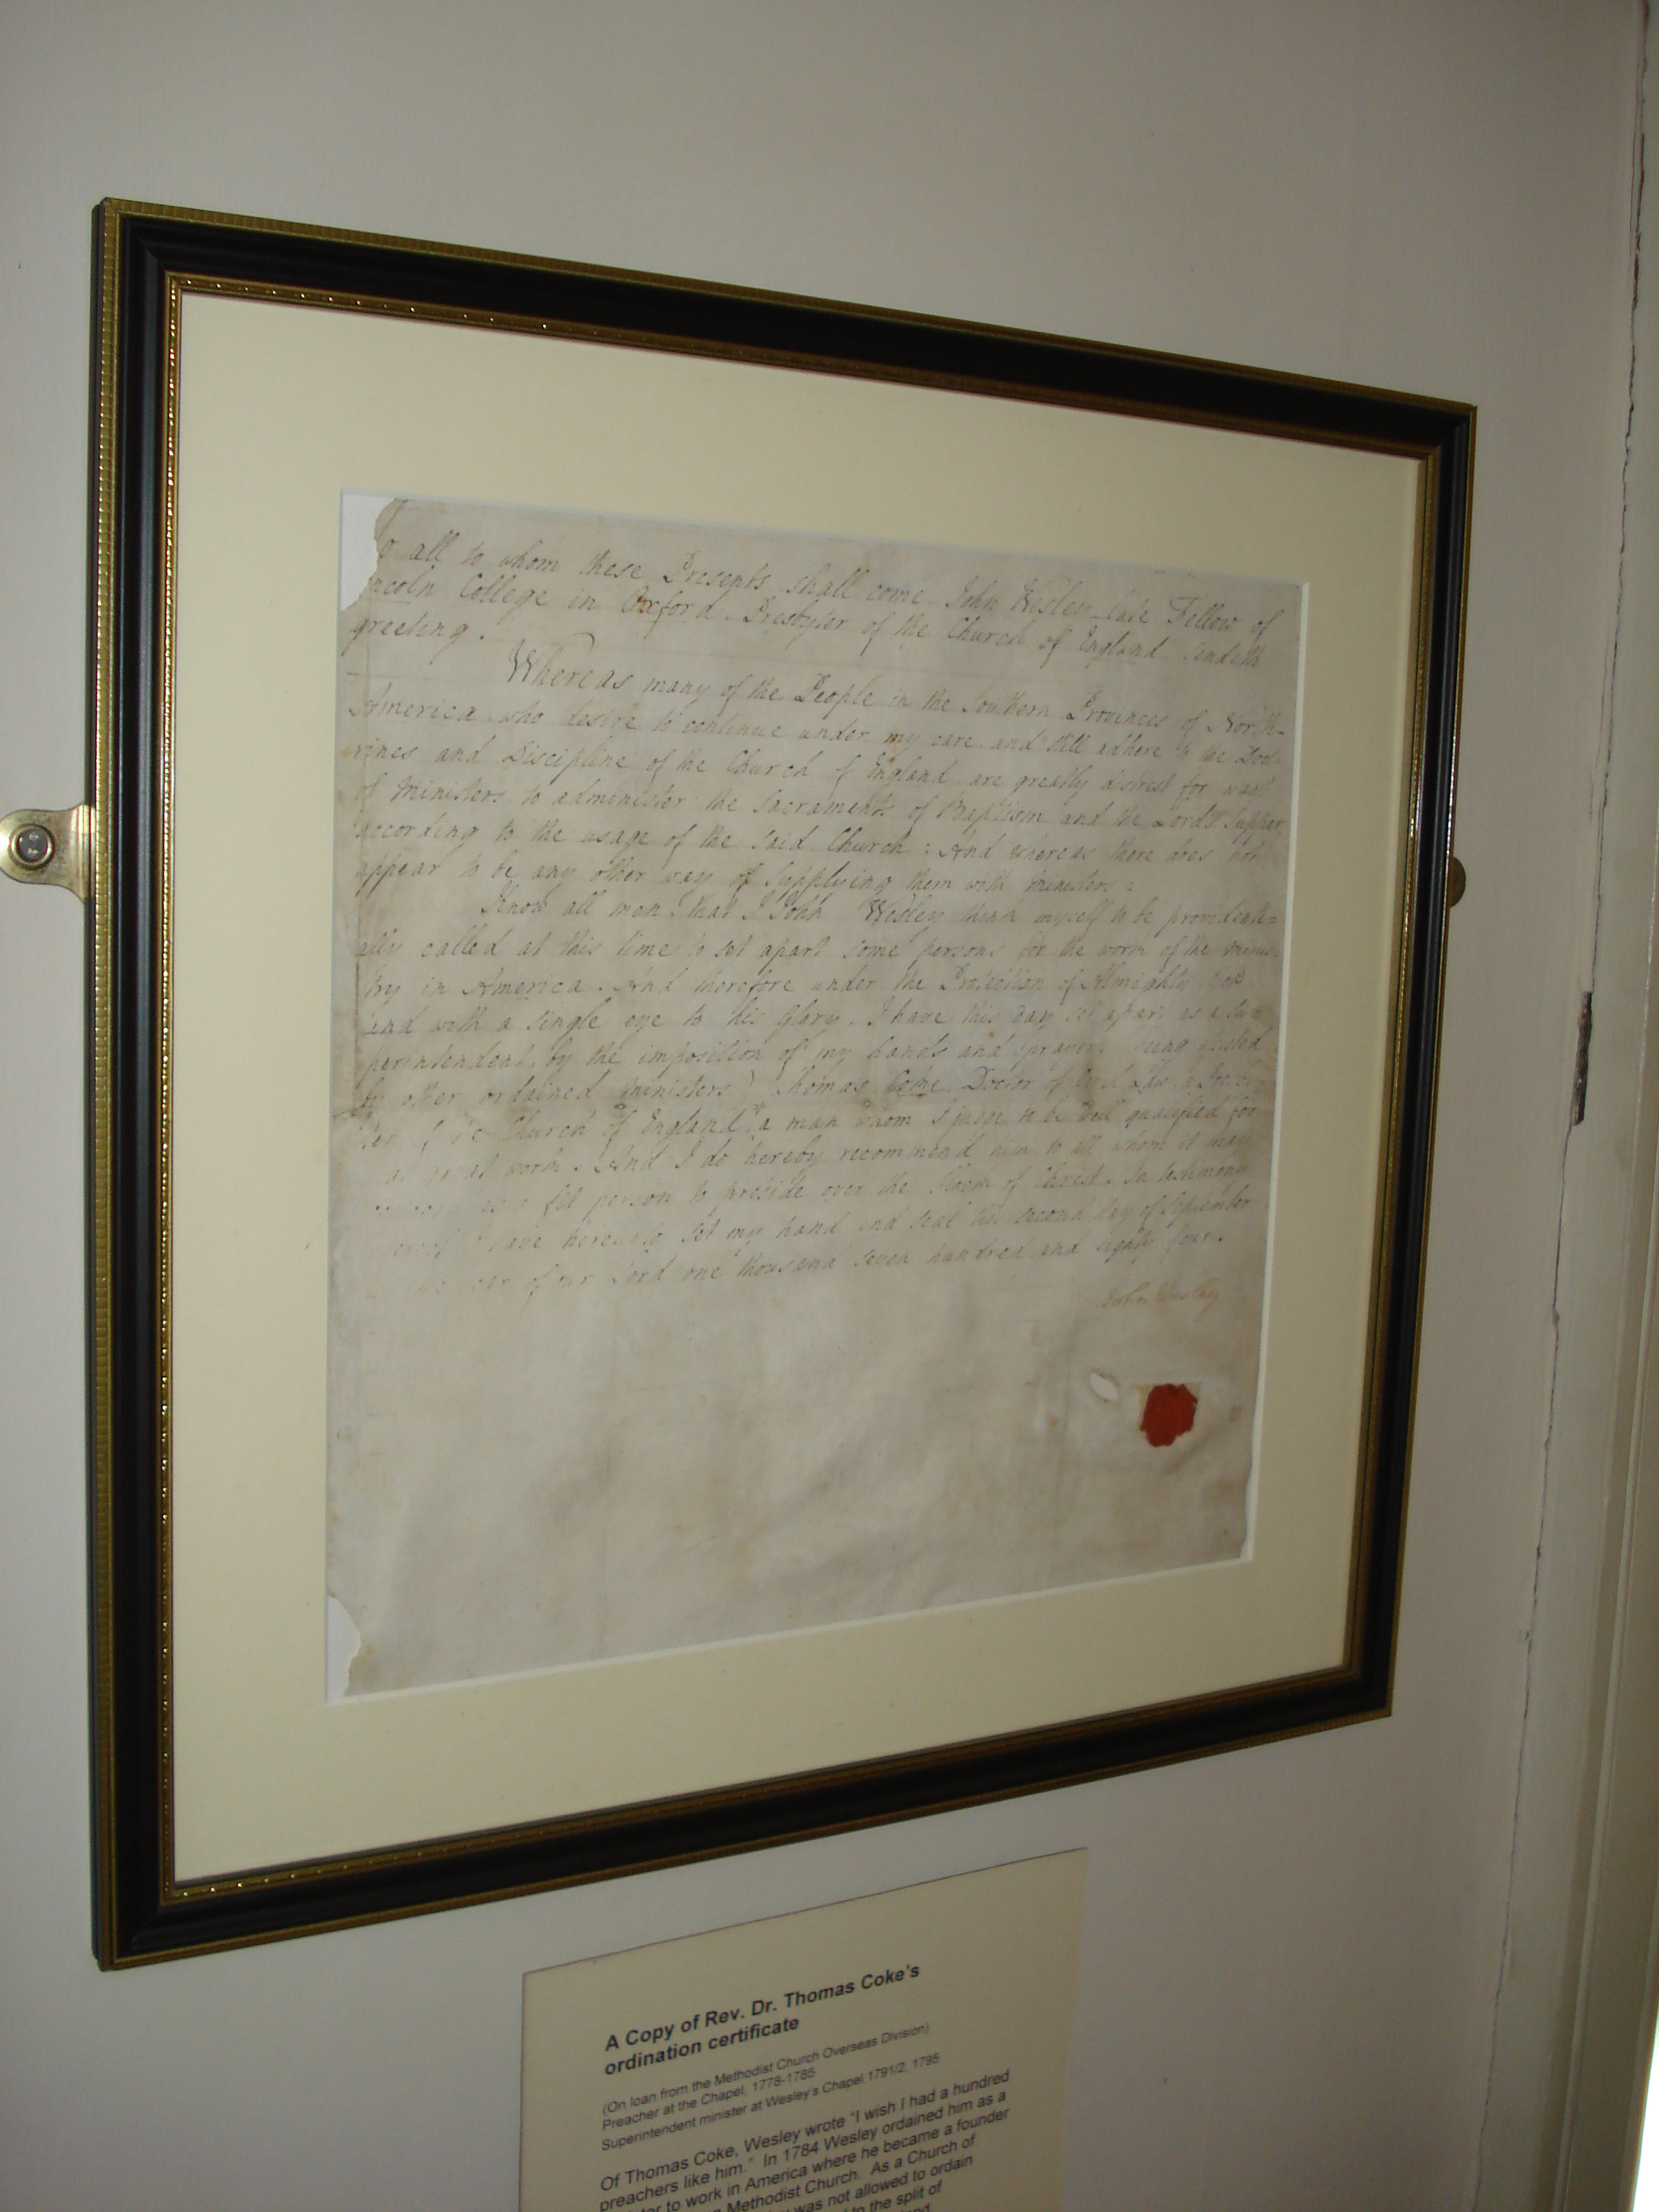 o all to whom these Presents shall come John Wesley late Fellow of
incoln College in Oxford Presbyter of the Church of England sendeth
greeting.
Whereas many of the People in the Southern Provinces of North-
America who desire to continue under my care and still adhere to the Doc-
rines and Discipline of the Church of England are greatly distrest for want
of Ministers to administer the Sacraments of Baptism and the Lord's Supper
according to the usage of the said Church: And whereas there does not
appear to be any other way of Supplying them with Ministers:
Know all men that I John Wesley think myself to be providenti=
ally called at this time to set apart some persons for the work of the minis-
try in America. And therefore under the Protection of Almighty God
and with a single eye to his Glory. I have this day set apart as a Su=
perintendent, by the imposition of my hands and prayer being assisted
by other ordained ministers) Thomas Coke Doctor of Civil Law a Presby-
ter of the Church of England & a man whom I judge to be well qualified for
work. And I do hereby recommend him to all whom it may
as a fit person to preside over the Flock of Christ. In testimony
have hereunto set my hand and seal this second day of September
of our Lord one thousand seven hundred and eighty four.
John Wesley
A Copy of Rev. Dr. Thomas Coke's
ordination certificate
(On loan from the Methodist Church Overseas Division)
Preacher at the Chapel, 1778-1785
Superintendent minister at Wesley's Chapel 1791/2, 1795
Of Thomas Coke, Wesley wrote "I wish I had a hundred
preachers like him." In 1784 Wesley ordained him as a
to work in America where he became a founder
Methodist Church. As a Church of
was not allowed to ordain
to the split of